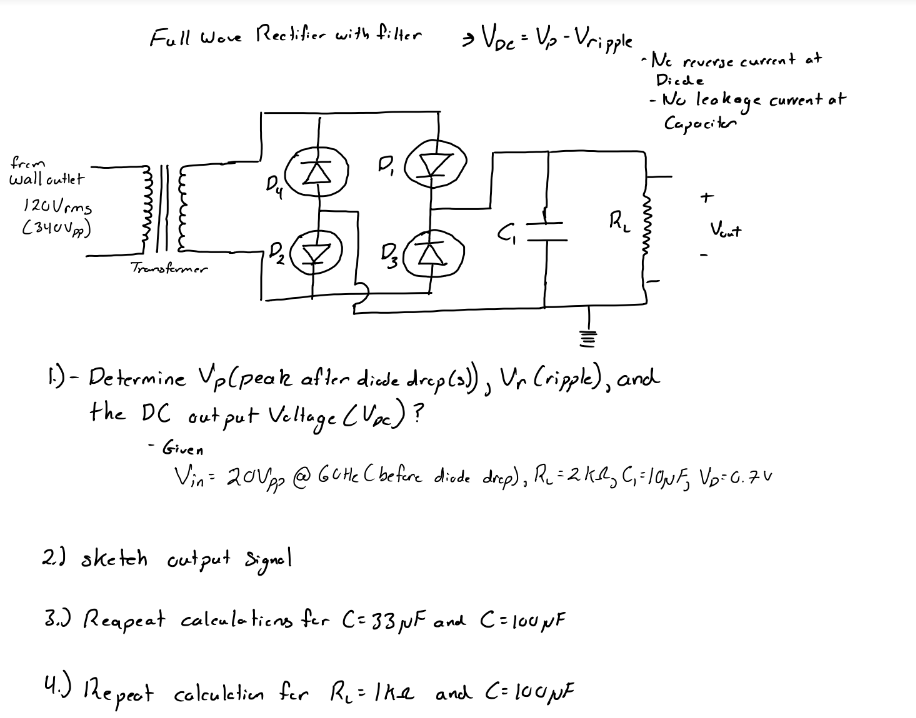 Full Wave Rectifier with filter → VDC = Vp - Vripple
- No reverse current at
Diode
- No leakage current at
Capacitor
from
wall outlet
120Vrms
(340Vpp)
Transformer
D4
D1
D2
D3
C1
RL
+
Vout
-
1.) - Determine Vp(peak after diode drop(s)), Vr (ripple), and
the DC output Voltage (VDC)?
- Given
Vin = 20Vpp @ 60Hz (before diode drop), RL = 2kΩ, C1 = 10µF, VD = 0.7V
2.) sketch output signal
3.) Reapeat calculations for C = 33µF and C = 100µF
4.) Repeat calculation for RL = 1kΩ and C = 100µF